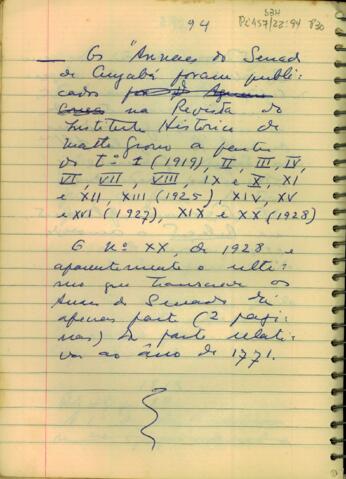 94
SBH
Pi 157/22:94 P30
— Os "Annaes do Senado
de Cuyabá foram publi-
cados por D. Aquino
Corrêa na Revista do
Instituto Historico de
Matto Grosso a partir
do T.º 1 (1919), II, III, IV,
VI, VII, VIII, IX e X, XI
e XII, XIII (1925), XIV, XV
e XVI (1927), XIX e XX (1928)
O nº XX, de 1928 e
aparentemente o ulti-
mo que transcreve os
Annaes do Senado dá
apenas parte (2 pagi-
nas) da parte relati-
va ao âno de 1771.